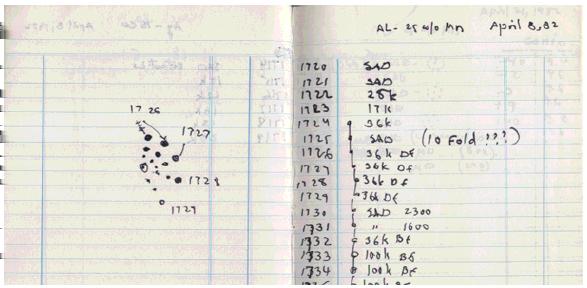 AL-25 w/o Mn April 8, 82
1720 SAD
1721 SAD
1722 25k
1723 17k
1724 36k
1725 SAD (10 Fold ???)
1726 36k Df
1727 36k Df
1728 36k Df
1729 36k Df
1730 SAD 2300
1731 " 1600
1732 36k Bf
1733 100k Bf
1734 100k Bf
100k Bf
1726
1727
1728
1729